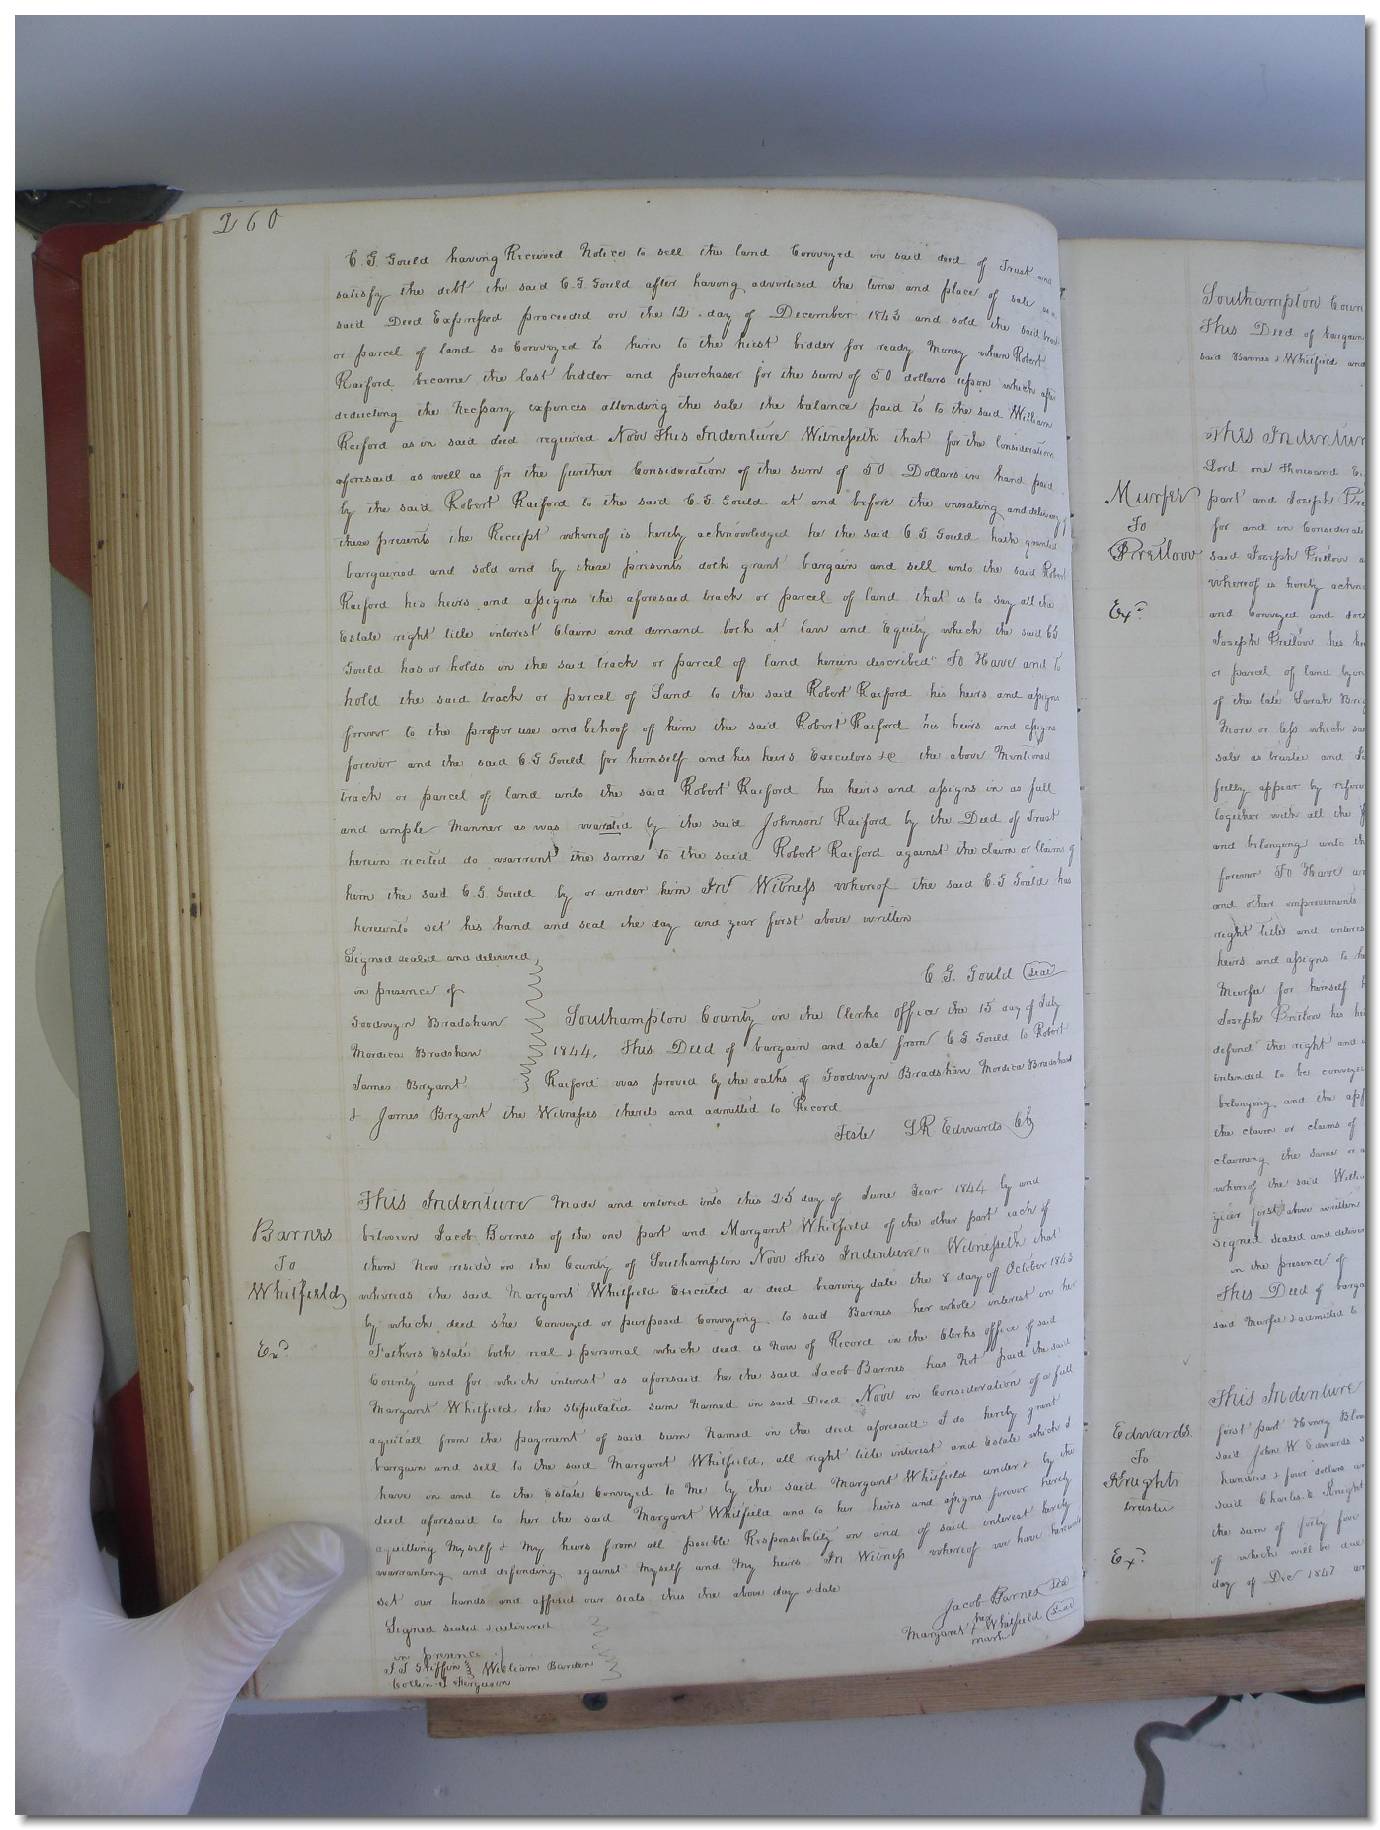 260
C. G. Gould having Received Notice to sell the land Conveyed in said deed of Trust and
satisfy the debt the said C. G. Gould after having advertised the time and place of sale as in
said Deed Expressed proceeded on the 12 day of December 1843 and sold the said tract
or parcel of land so Conveyed to him to the hiest bidder for ready Money when Robert
Raiford became the last bidder and purchaser for the sum of 50 dollars upon which after
deducting the Necssary expences attending the sale the balance paid to to the said William
Raiford as in said deed required Now This Indenture Witnesseth that for the Consideration
aforesaid as well as for the further Consideration of the sum of 50 Dollars in hand paid
by the said Robert Raiford to the said C. G Gould at and before the ensealing and delivery of
these presents the Receipt whereof is hereby acknowledged he the said C G Gould hath granted
bargained and sold and by these presents doth grant bargain and sell unto the said Robert
Raiford his heirs and assigns the aforesaid track or parcel of land that is to say all the
Estate right title interest Claim and demand both at Law and Equity which the said C G
Gould has or holds in the said track or parcel of land herein described To Have and to
hold the said track or parcel of Land to the said Robert Raiford his heirs and assigns
forever to the proper use and behoof of him the said Robert Raiford his heirs and assigns
forever and the said C. G Gould for himself and his heirs Executors &c the above Mentioned
track or parcel of land unto the said Robert Raiford his heirs and assigns in as full
and ample Manner as was by the said Johnson Raiford by the Deed of Trust
herein recited do warrant the same to the said Robert Raiford against the claim or Claims of
him the said C. G. Gould by or under him In Witness whereof the said C. G Gould has
hereunto set his hand and seal the day and year first above written
Signed sealed and delivered
in presence of
C. G. Gould Seal
Goodwyn Bradshaw
Mordica Bradshaw
James Bryant
Southampton County in the Clerks office the 15 day of July
1844, This Deed of bargain and sale from C G Gould to Robert
Raiford was proved by the oaths of Goodwyn Bradshaw Mordica Bradshaw
& James Bryant the Witnesses thereto and admitted to Record
Teste L R Edwards Ck
Barnes
To
Whitfield
Exd
This Indenture Made and entered into this 25 day of June Year 1844 by and
between Jacob Barnes of the one part and Margaret Whitfield of the other part each of
them Now reside in the County of Southampton Now This Indenture Witnesseth that
whereas the said Margaret Whitfield Executed a deed bearing date the 8 day off October 1843
by which deed she Conveyed or purposed Conveying to said Barnes her whole interest in her
Fathers Estate both real & personal which deed is Now of Record in the Clerks office of said
County and for which interest as aforesaid he the said Jacob Barnes has Not paid the said
Margaret Whitfield the stipulated sum Named in said Deed Now in Consideration of a full
aquitall from the payment of said sum Named in the deed aforesaid I do hereby grant
bargain and sell to the said Margaret Whitfield, all right title interest and Estate which I
have in and to the Estate Conveyed to Me by the said Margaret Whitfield under & by the
deed aforesaid to her the said Margaret Whitfield and to her heirs and assigns forever hereby
aquitting Myself & My heirs from all possible Responsibility on and of said interest hereby
warranting and defending against Myself and My heirs In Witness whereof we have hereunto
set our hands and affixed our seals this the above day & date
Signed sealed & delivered
in presence of
Jacob Barnes Seal
her
Margaret + Whitfield Seal
mark
William Barden
Ferguson
Southampton Coun
This Deed of bargain
said Barnes & Whitfield and
Murfee
To
Pretlow
Exd
This Indenture
Lord one thousand Ei
part and Joseph Pre
for and in Considerati
said Joseph Pretlow a
whereof is hereby ackno
and Conveyed and doth
Joseph Pretlow his he
or parcel of land lying
of the late Sarah
More or less which sai
sale as trustee and
fully appear by refere
together with all the
and belonging unto th
forever To Have an
and other improvements
right title and interes
heirs and assigns to he
Murfee for himself h
Joseph Pretlow his hei
defend the right and
intended to be conveyed
belonging and the app
the claim or claims of
claiming the same or a
whereof the said Willi
year first above written
Signed sealed and deliver
in the presence of
This Deed of barga
said Murfee & admitted to
Edwards
To
Knights
trustee
Exd
This Indenture
first part Henry Blow
said John W. Edwards
hundred & four dollars
said Charles E Knight
the sum of forty four
of which will be due
day of Dec 1847 an